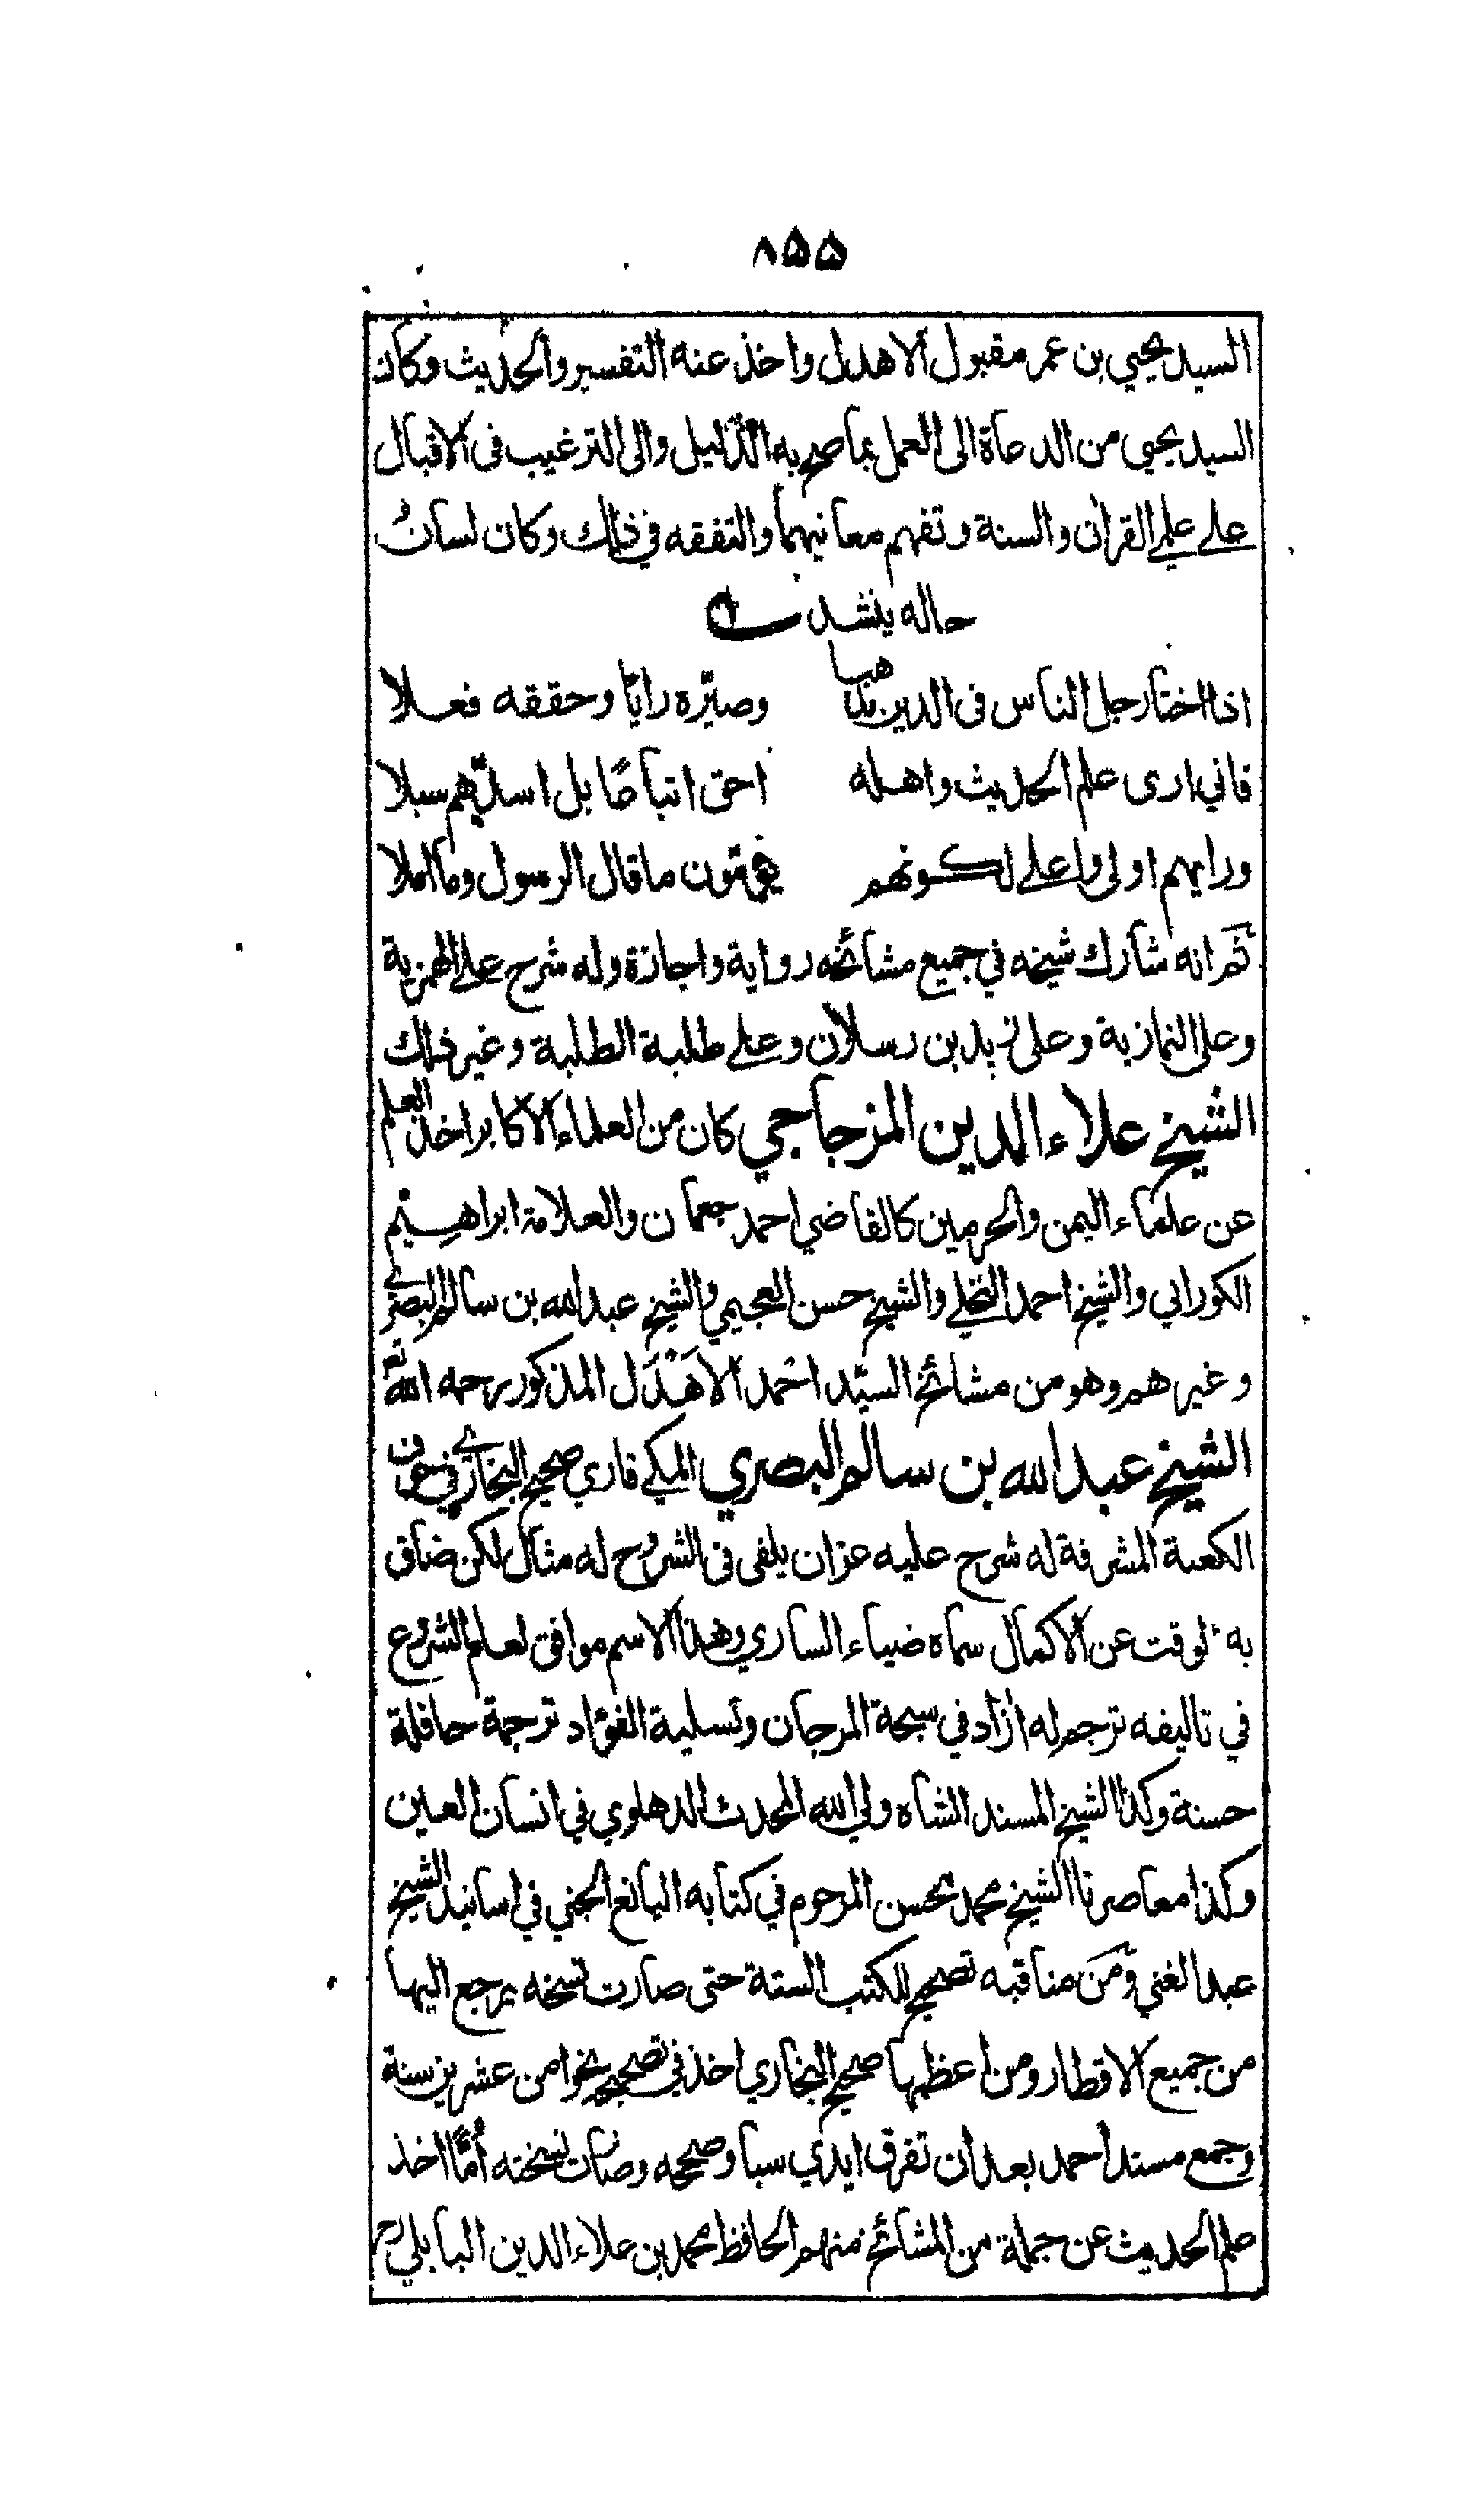 ٨٥٥
السيد يحيي بن عمر مقبول الاهدل واخذ عنه التفسير والحديث وكان
السيد يحيى من الدعاة الى العمل بما صح به الدليل والى الترغيب فى الاقبال
على علمي القرآن والسنة وتفهم معانيهما والتفقه في ذلك وكان لسانُ
حاله ينشد
اذا اختار جل الناس فى الدين مذهبا وصيّره رايًا وحققه فعلا
فاني ارى علم الحديث واهله احق اتباعًا بل اسدّهم سبلا
ورايهم اولى واعلى لكونهم يؤمّون ما قال الرسول وما املا
ثم انه شارك شيخه في جميع مشائخه رواية واجازة وله شرح على الهمزية
وعلى النمازية وعلى زبد بن رسلان وعلى طلبة الطلبة وغير ذلك
الشيخ علاء الدين المزجاجي كان من العلماء الاكابر اخذ العلم
عن علماء اليمن والحرمين كالقاضي احمد جعمان والعلامة ابراهيم
الكوراني والشيخ احمد النخلي والشيخ حسن العجيمي والشيخ عبد الله بن سالم البصري
وغيرهم وهو من مشائخ السيّد احمد الاَهْدَل المذكور رحمه الله تع
الشيخ عبد الله بن سالم البصري المكي قاري صحيح البخاري في جوف
الكعبة المشرفة له شرح عليه عز ان يلفى فى الشروح له مثال لكن ضاق
به الوقت عن الاكمال سماه ضياء الساري وهذا الاسم موافق لعام الشروع
في تاليفه ترجم له ازاد في سبحة المرجان وتسلية الفؤاد ترجمة حافلة
حسنة وكذا الشيخ المسند الشاه ولي الله المحدث الدهلوي في انسان العين
وكذا معاصرنا الشيخ محمد محسن المرحوم في كتابه اليانع الجني في اسانيد الشيخ
عبد الغني ومن مناقبه تصحيح للكتب الستة حتى صارت نسخه يرجع اليها
من جميع الاقطار ومن اعظمها صحيح البخاري اخذ في تصحيحه نحوا من عشرين سنة
وجمع مسند احمد بعد ان تفرق ايدي سبا وصححه وصارت نسخته أمًّا اخذ
علم الحديث عن جملة من المشائخ منهم الحافظ محمد بن علاء الدين البابلي رح